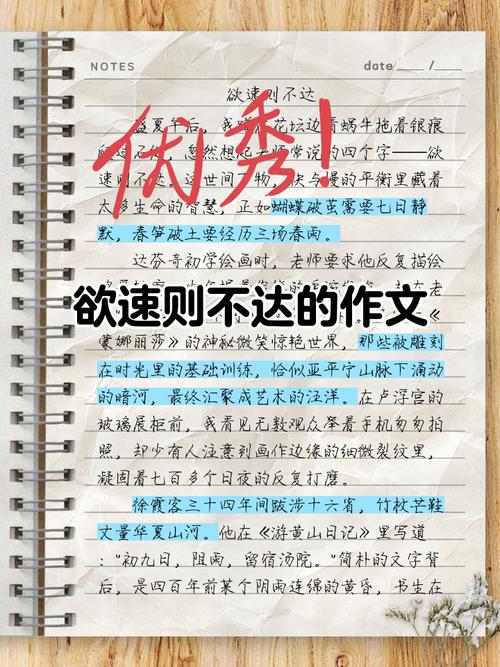 NOTES
date ___ /___
欲速则不达
优秀！
盛夏午后，我 花坛边看蜗牛拖着银痕
忽然想起 师常说的四个字——欲
速则不达。这世间 物，快与慢的平衡里藏着
太多生命的智慧，正如蝴蝶破茧需要七日静
默，春笋破土要经历三场春雨。
达芬奇初学绘画时，老师要求他反复描绘
欲速则不达的作文
《
蒙娜丽莎》的神秘微笑惊艳世界，那些被雕刻
在时光里的基础训练，恰似亚平宁山脉下涌动
的暗河，最终汇聚成艺术的汪洋。在卢浮宫的
玻璃展柜前，我看见无数观众举着手机匆匆拍
照，却少有人注意到画作边缘的细微裂纹里，
凝固着七百多个日夜的反复打磨。
徐霞客三十四年间跋涉十六省，竹杖芒鞋
丈量华夏山河。他在《游黄山日记》里写道
："初九日，阻雨，留宿汤院。"简朴的文字背
后，是四百年前某个阴雨连绵的黄昏，书生在